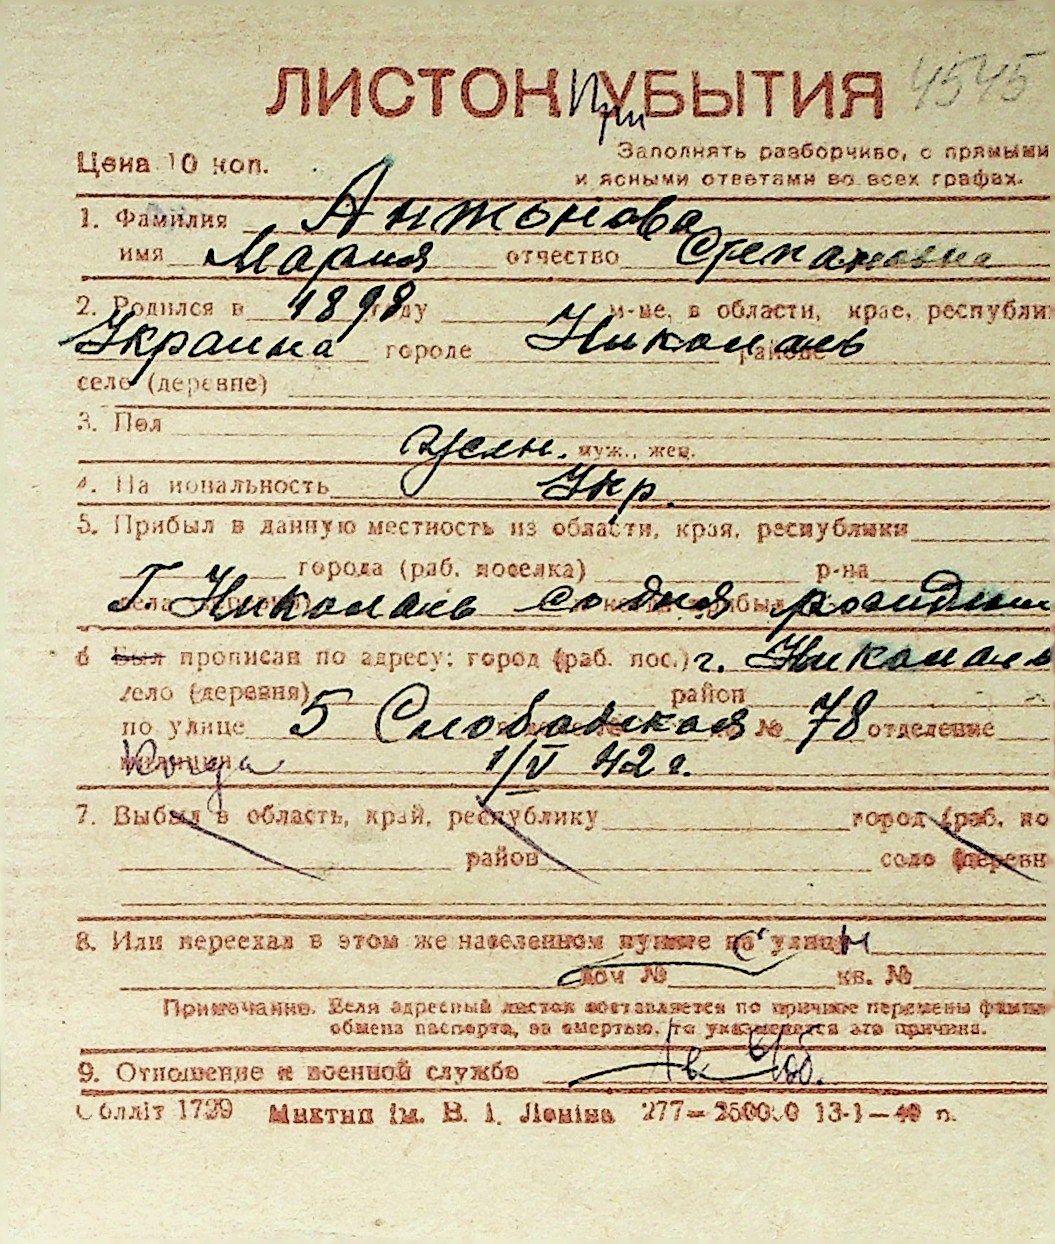 4545
ЛИСТОК При УБЫТИЯ
Цена 10 коп.
Заполнять разборчиво, с прямыми
и ясными ответами во всех графах.
1. Фамилия Антонова
имя Мария отчество Степановна
2. Родился в 1898 году м-це, в области, крае, республи
Украина городе Николаев районе
село (деревне)
3. Пол женн. муж., жен.
4. На иональность Укр.
5. Прибыл в данную местность из области, края, республики
города (раб. поселка) р-на
Г. Николаев со дня рождени
6 Был прописан по адресу: город (раб. пос.) г. Николаев
село (деревня) район
по улице 5 Слободская № 78 отделение
милиции Когда 1/V 42 г.
7. Выбыл в область, край, республику город (раб. по
район село (деревн
8. Или переехал в этом же населенном пункте на улицу
дом № кв. №
Примечание. Если адресный листок составляется по причине перемены фамили
обмена паспорта, за смертью, то указывается эта причина.
9. Отношение к военной службе
Облліт 1739 Миктип ім. В. І. Леніна 277— 250000 13-1—40 п.